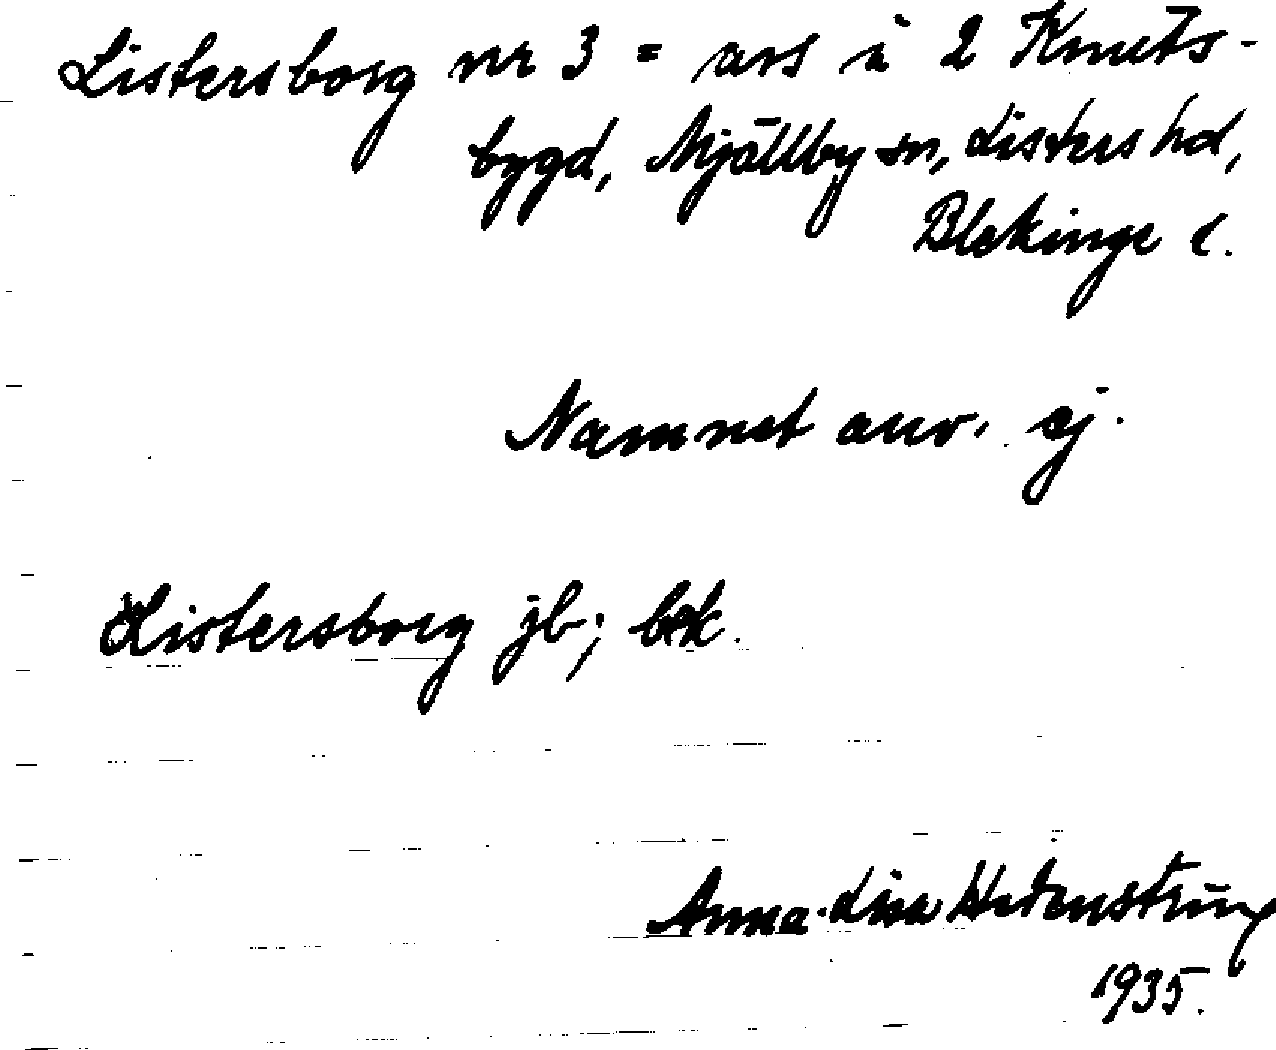 Listersborg nr 3 = avs i 2 Knuts-
bygd, Mjällby sn, Listers hd,
Blekinge l.
Namnet anv. ej.
Listersborg jb; bek.
Anna-Lisa
1935.